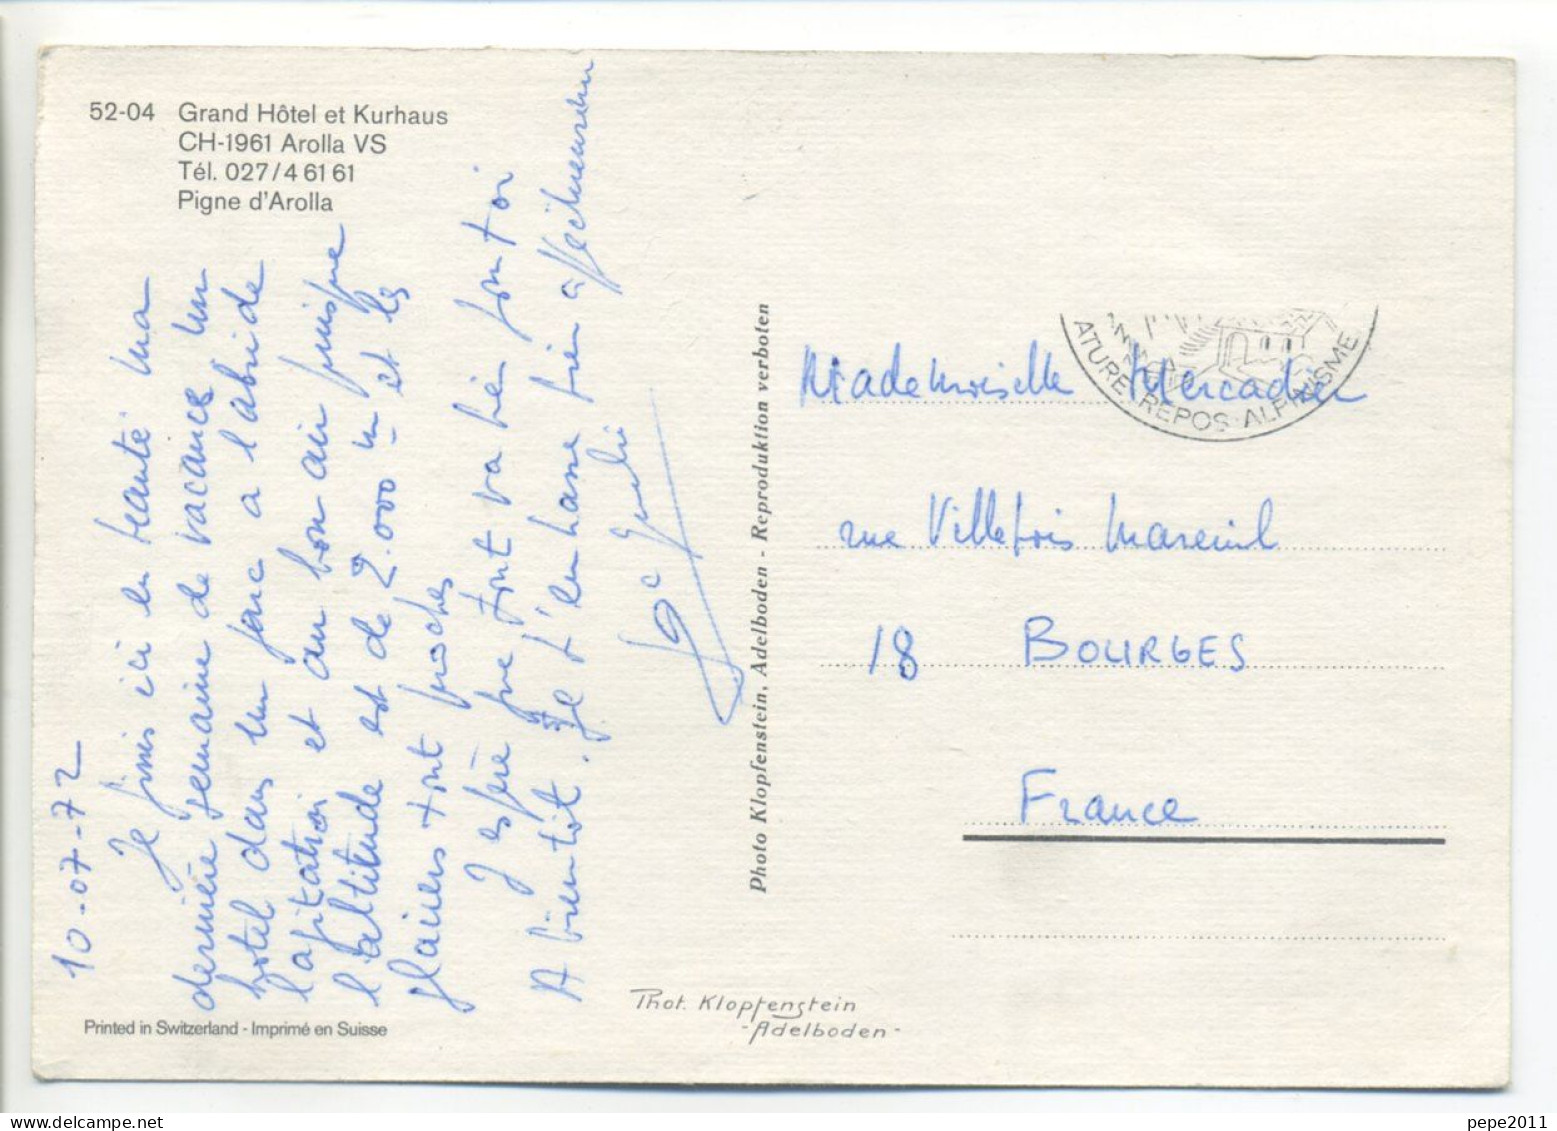 52-04 Grand Hôtel et Kurhaus
CH-1961 Arolla VS
Tél. 027/4 61 61
Pigne d'Arolla
10-07-72
Je finis ici en beauté ma
dernière semaine de vacances un
hotel dans un parc a l'abri de
l'agitation et au bon air puisque
l'altitude est de 2.000 m et les
glaciers tout proches
J espère que tout va bien pour toi
A bientot. Je t'embrasse bien affectueusement
Photo Klopfenstein, Adelboden - Reproduktion verboten
Mademoiselle Mercadier
rue Villebois Mareuil
18 BOURGES
France
ATURE · REPOS · ALPINISME
Phot. Klopfenstein
- Adelboden -
Printed in Switzerland - Imprimé en Suisse
pepe2011